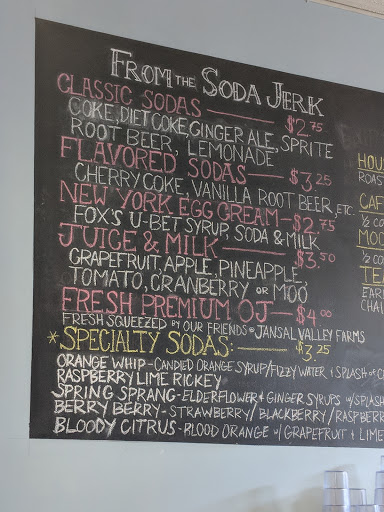 FROM THE SODA JERK
CLASSIC SODAS $2.75
COKE, DIET COKE, GINGER ALE, SPRITE
ROOT BEER, LEMONADE
FLAVORED SODAS $3.25
CHERRY COKE, VANILLA ROOT BEER, ETC.
NEW YORK EGG CREAM—$2.75
FOX'S U-BET SYRUP, SODA & MILK
JUICE & MILK $3.50
GRAPEFRUIT, APPLE, PINEAPPLE,
TOMATO, CRANBERRY OR MOO
FRESH PREMIUM OJ—$4.00
FRESH SQUEEZED BY OUR FRIENDS @ JANSAL VALLEY FARMS
*SPECIALTY SODAS: $3.25
ORANGE WHIP-CANDIED ORANGE SYRUP/FIZZY WATER & SPLASH OF
RASPBERRY LIME RICKEY
SPRING SPRANG-ELDERFLOWER & GINGER SYRUPS W/SPLASH
BERRY BERRY-STRAWBERRY/BLACKBERRY/RASPBERR
BLOODY CITRUS-BLOOD ORANGE W/ GRAPEFRUIT & LIME
HOU
ROAS
CAF
1/2 C
MOC
1/2 CO
TE
EAR
CHAI